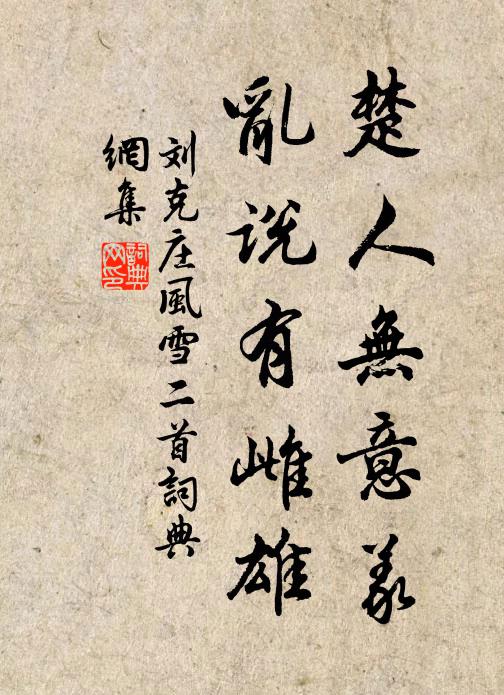 楚人無意義
亂說有雌雄
刘克庄風雪二首詞典
網集
詞典网印